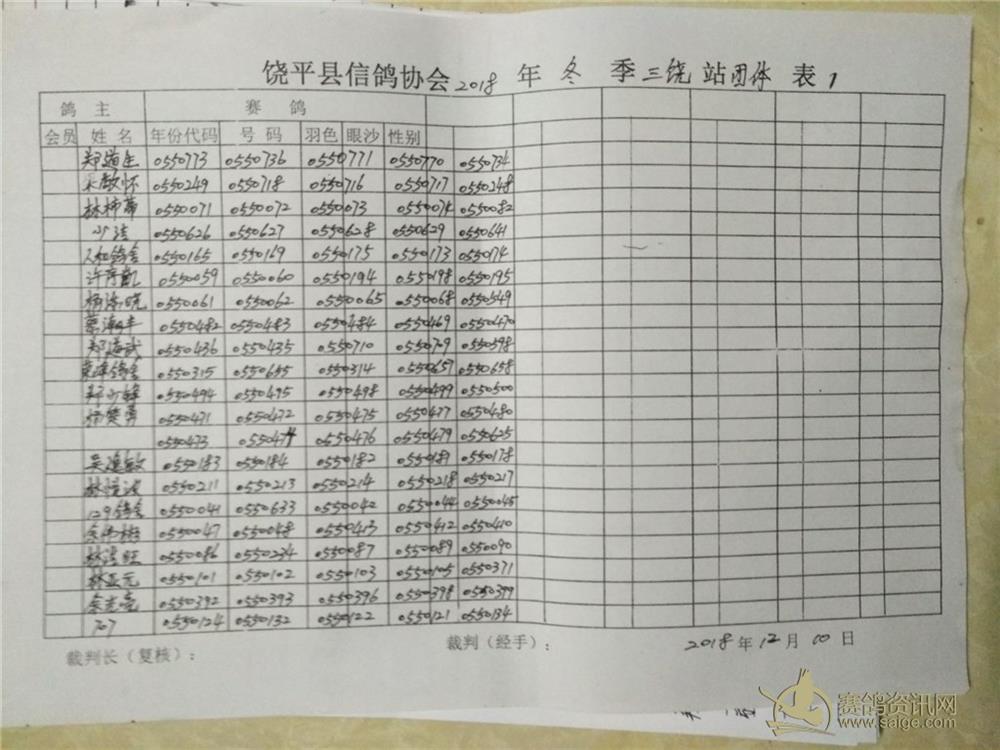 饶平县信鸽协会 2018 年 冬 季 三饶 站 团体 表 1
鸽 主 赛 鸽
会员 姓 名 年份代码 号 码 羽色 眼沙 性别
郑道生 0550773 0550736 0550771 0550770 0550734
0550249 0550718 0550716 0550717 0550248
0550071 0550072 0550073 0550074 0550082
0550626 0550627 0550628 0550629 0550641
0550165 0550169 0550175 0550173 0550174
0550059 0550060 0550194 0550198 0550195
0550061 0550062 0550065 0550068 0550549
0550482 0550483 0550484 0550469 0550470
郑道武 0550436 0550435 0550710 0550709 0550598
0550315 0550655 0550314 0550657 0550658
0550494 0550495 0550498 0550499 0550500
杨奕勇 0550471 0550472 0550475 0550477 0550480
0550473 0550474 0550476 0550479 0550625
0550183 0550184 0550182 0550181 0550178
0550211 0550213 0550214 0550218 0550217
129鸽舍 0550041 0550633 0550042 0550044 0550045
0550047 0550048 0550413 0550412 0550410
0550086 0550234 0550087 0550089 0550090
0550101 0550102 0550103 0550105 0550371
0550392 0550393 0550396 0550398 0550399
707 0550124 0550132 0550122 0550121 0550134
裁判长（复核）： 裁判（经手）： 2018 年 12 月 10 日
赛鸽资讯网
www.saige.com